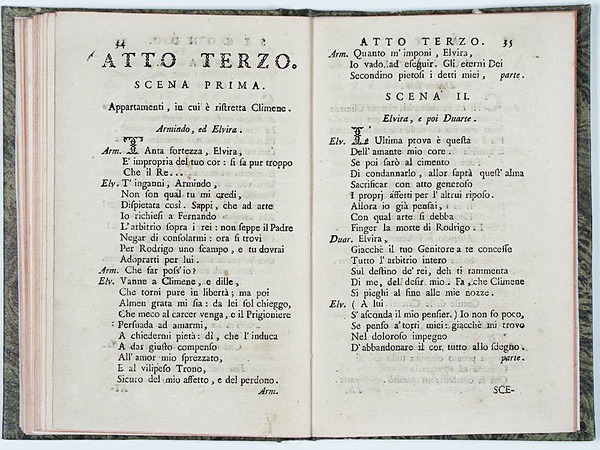 34
ATTO TERZO.
SCENA PRIMA.
Appartamenti, in cui è ristretta Climene.
Armindo, ed Elvira.
Arm. Tanta fortezza, Elvira,
E' impropria del tuo cor: si sa pur troppo
Che il Re...
Elv. T' inganni, Armindo,
Non son qual tu mi credi,
Dispietata così. Sappi, che ad arte
Io richiesi a Fernando
L'arbitrio sopra i rei: non seppe il Padre
Negar di consolarmi: ora si trovi
Per Rodrigo uno scampo, e tu dovrai
Adoprarti per lui.
Arm. Che far poss' io?
Elv. Vanne a Climene, e dille,
Che torni pure in libertà; ma poi
Almen grata mi sia: da lei sol chieggo,
Che meco al carcer venga, e il Prigioniere
Persuada ad amarmi,
A chiedermi pietà: dì, che l'induca
A dar giusto compenso
All' amor mio sprezzato,
E al vilipeso Trono,
Sicuro del mio affetto, e del perdono.
Arm.
ATTO TERZO. 35
Arm. Quanto m' imponi, Elvira,
Io vado ad eseguir. Gli eterni Dei
Secondino pietosi i detti miei, parte.
SCENA II.
Elvira, e poi Duarte.
Elv. L' Ultima prova è questa
Dell' amante mio core.
Se poi sarò al cimento
Di condannarlo, allor saprà quest' alma
Sacrificar con atto generoso
I proprj affetti per l' altrui riposo.
Allora io già pensai,
Con qual arte si debba
Finger la morte di Rodrigo.
Duar. Elvira,
Giacchè il tuo Genitore a te concesse
Tutto l' arbitrio intero
Sul destino de' rei, deh ti rammenta
Di me, del desir mio. Fa, che Climene
Si pieghi al fine alle mie nozze.
Elv. ( A lui
S' asconda il mio pensier.) Io non so poco,
Se penso a' torti miei: giacchè mi trovo
Nel doloroso impegno
D' abbandonare il cor tutto allo sdegno.
parte.
SCE-